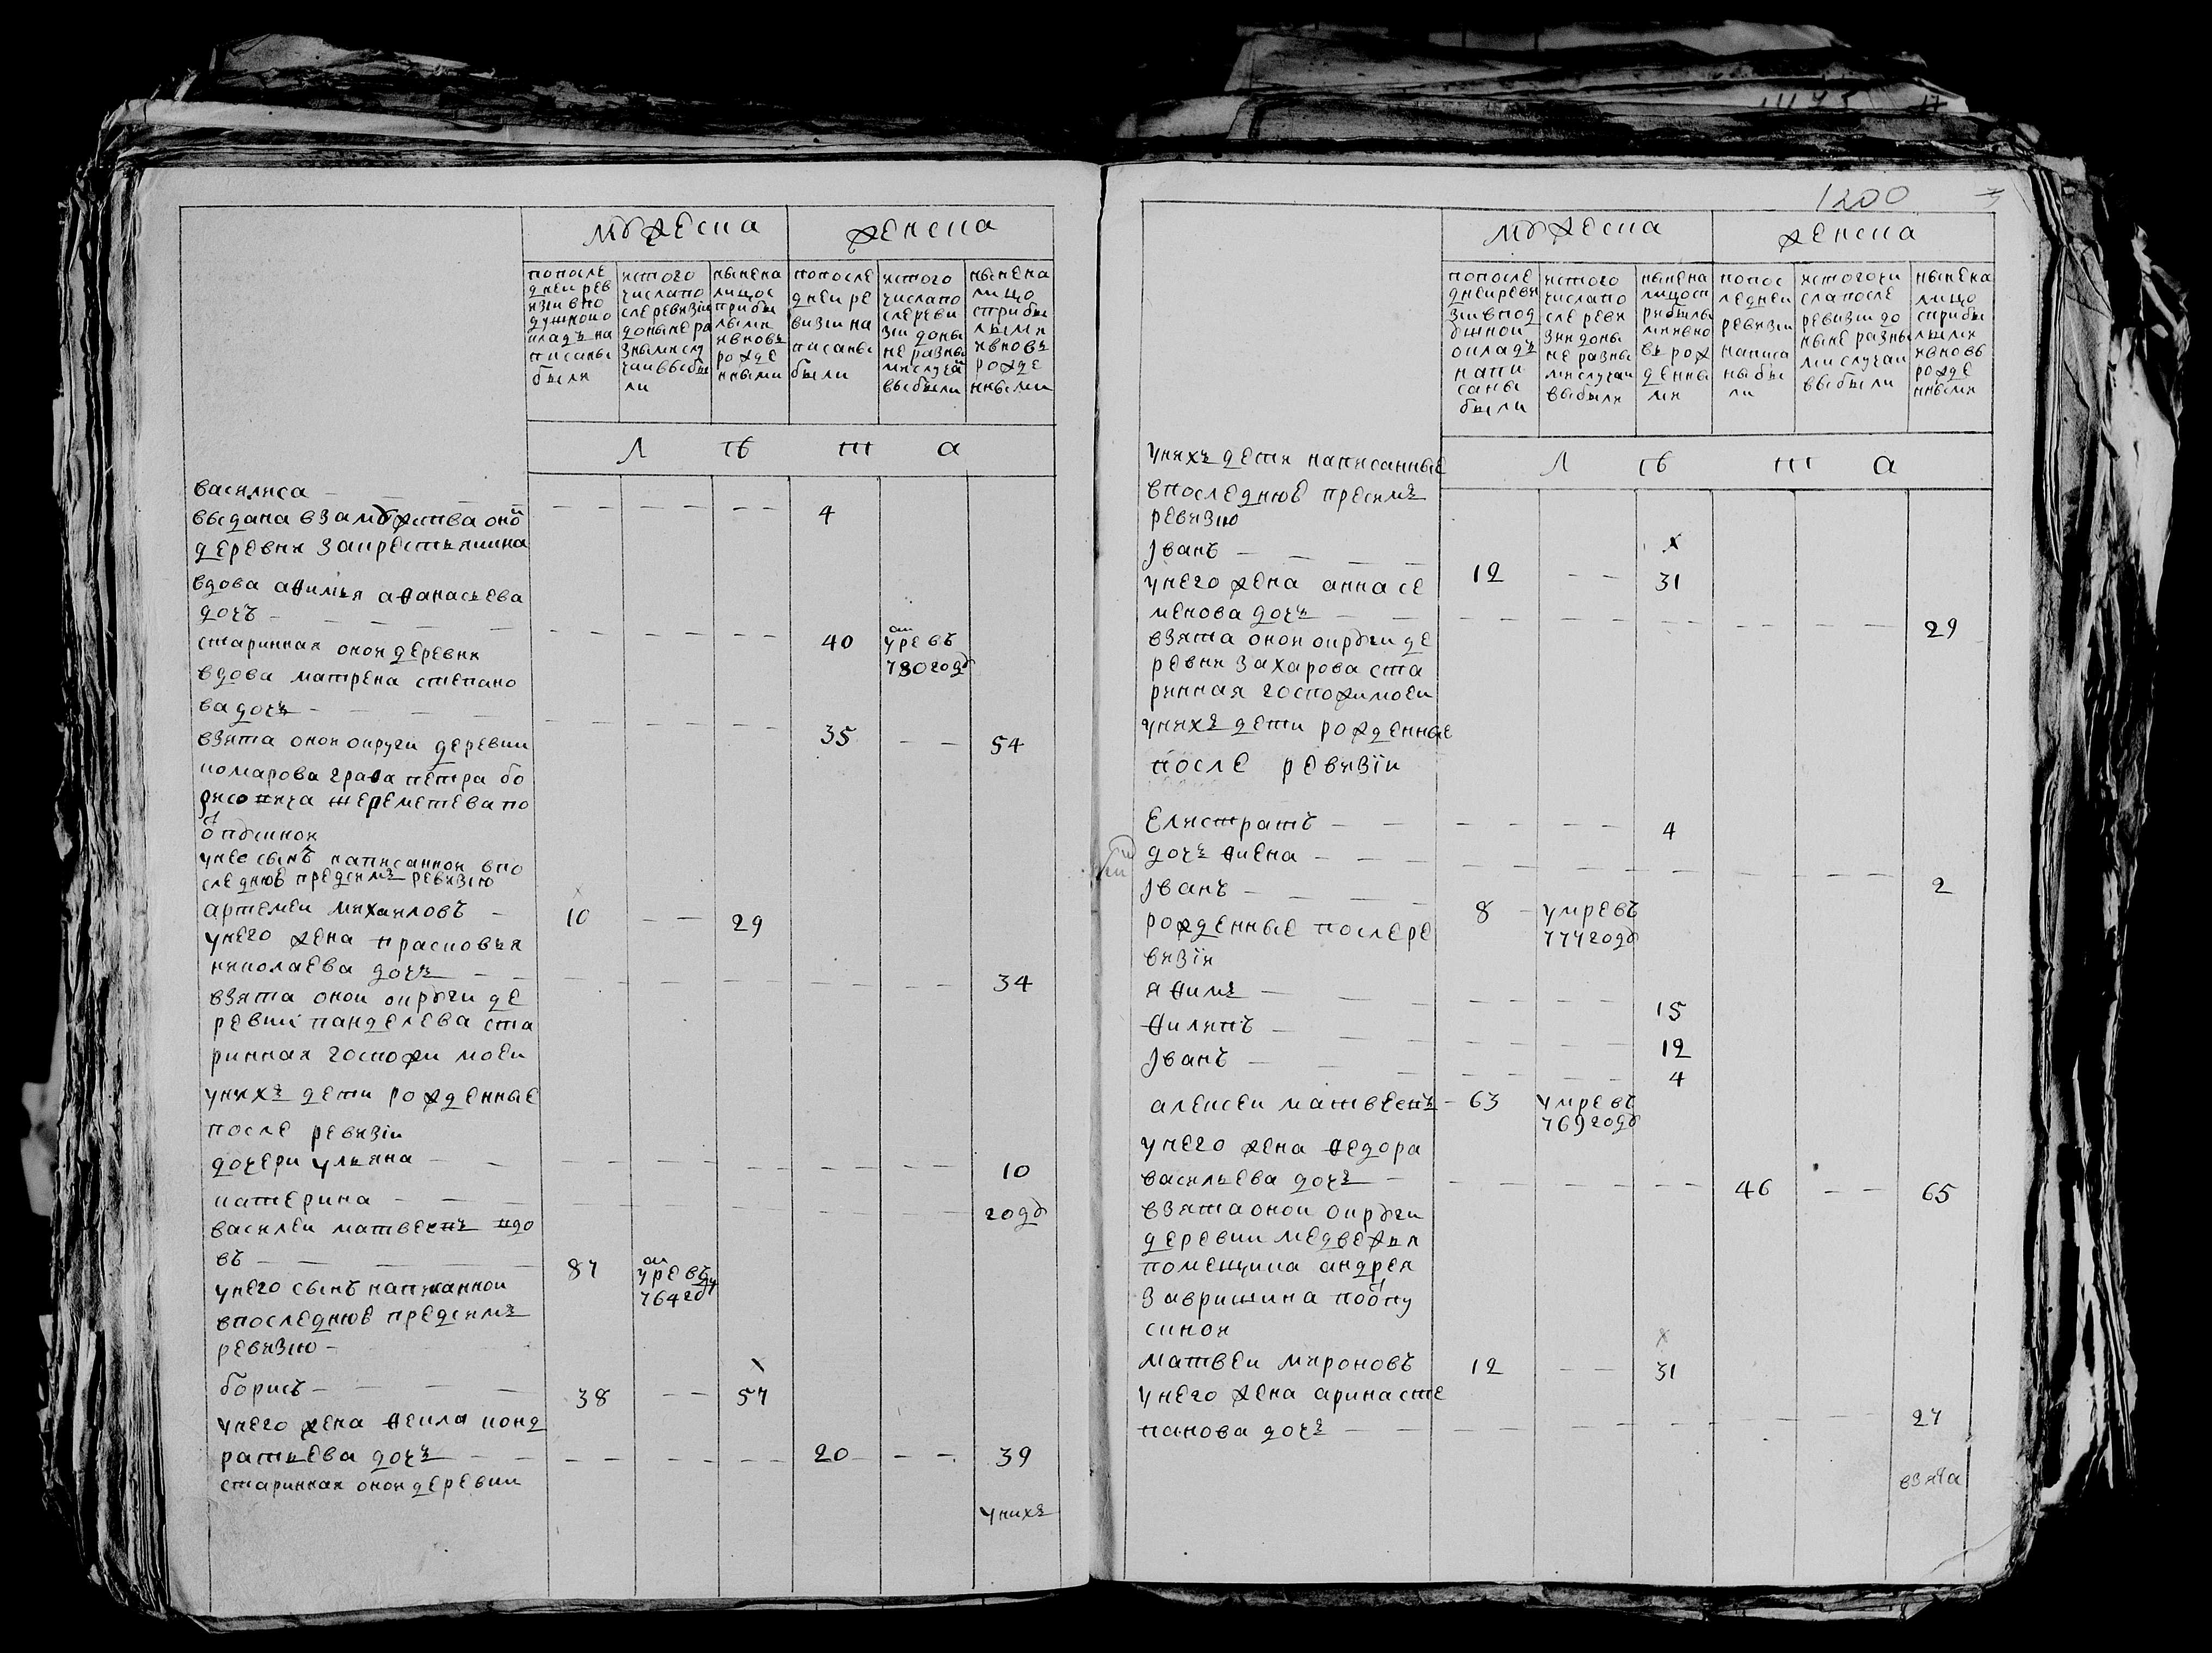 мужеска
женска
по после
дней рев
изии впо
душного
кладъ на
писаны
были
ис того
числа по
сле ревизии
до ныне ра
зными слу
чаи выбы
ли
ныне на
лицо с
прибы
лыми
и вновь
рожде
нными
по после
дней ре
визии на
писаны
были
ис того
числа по
сле реви
зии доны
не разны
ми случаи
выбыли
ныне на
лицо
с прибы
лыми
и вновь
рожде
нными
Л ѣ т а
василиса 4
выдана в замужства оной
деревни за крестьянина
вдова афимья афанасьева
дочь 40 умре въ 780 году
старинная оной деревни
вдова матрена степано
ва дочь 35 54
взята оной округи деревни
комарова графа петра бо
рисовича шереметева по
отпускной
у нее сынъ написанной впо
следнюю пред симъ ревизию
артемей михайловъ 10 29
у него жена прасковья
николаева дочь 34
взята оной округи де
ревни панделева ста
ринная госпожи моей
у нихъ дети рожденные
после ревизии
дочери ульяна 10
катерина году
василей матвеевъ вдо
въ 87 умре въ 764 году
у него сынъ написанной
в последнюю пред симъ
ревизию
борисъ 38 57
у него жена фекла конд
ратьева дочь 20 39
старинная оной деревни
у нихъ
1200
мужеска
женска
по после
дней реви
зии в под
ушной
окладъ
напи
саны
были
ис того
числа по
сле реви
зии доны
не разны
ми случаи
выбыли
ныне на
лицо сп
рибылы
ми и вно
вь рож
денны
ми
по пос
ледней
ревизии
написа
ны бы
ли
ис того чи
сла после
ревизии до
ныне разны
ми случаи
выбыли
ныне на
лицо
с прибы
лыми
и вновь
рожде
нными
Л ѣ т а
у нихъ дети написанные
в последнюю пред симъ
ревизию
Iванъ 12 31
у него жена анна се
менова дочь 29
взята оной округи де
ревни захарова ста
ринная госпожи моей
у нихъ дети рожденные
после ревизии
елистратъ 4
дочь фиена 2
Iванъ 8 умре въ 774 году
рожденные после ре
визии
яфимъ 15
филипъ 12
Iванъ 4
алексей матвеевъ 63 умре въ 769 году
у него жена федора
васильева дочь 46 65
взята оной округи
деревни медвежья
помещика андрея
завришина по отпу
скной
матвей мироновъ 12 31
у него жена арина сте
панова дочь 27
взята